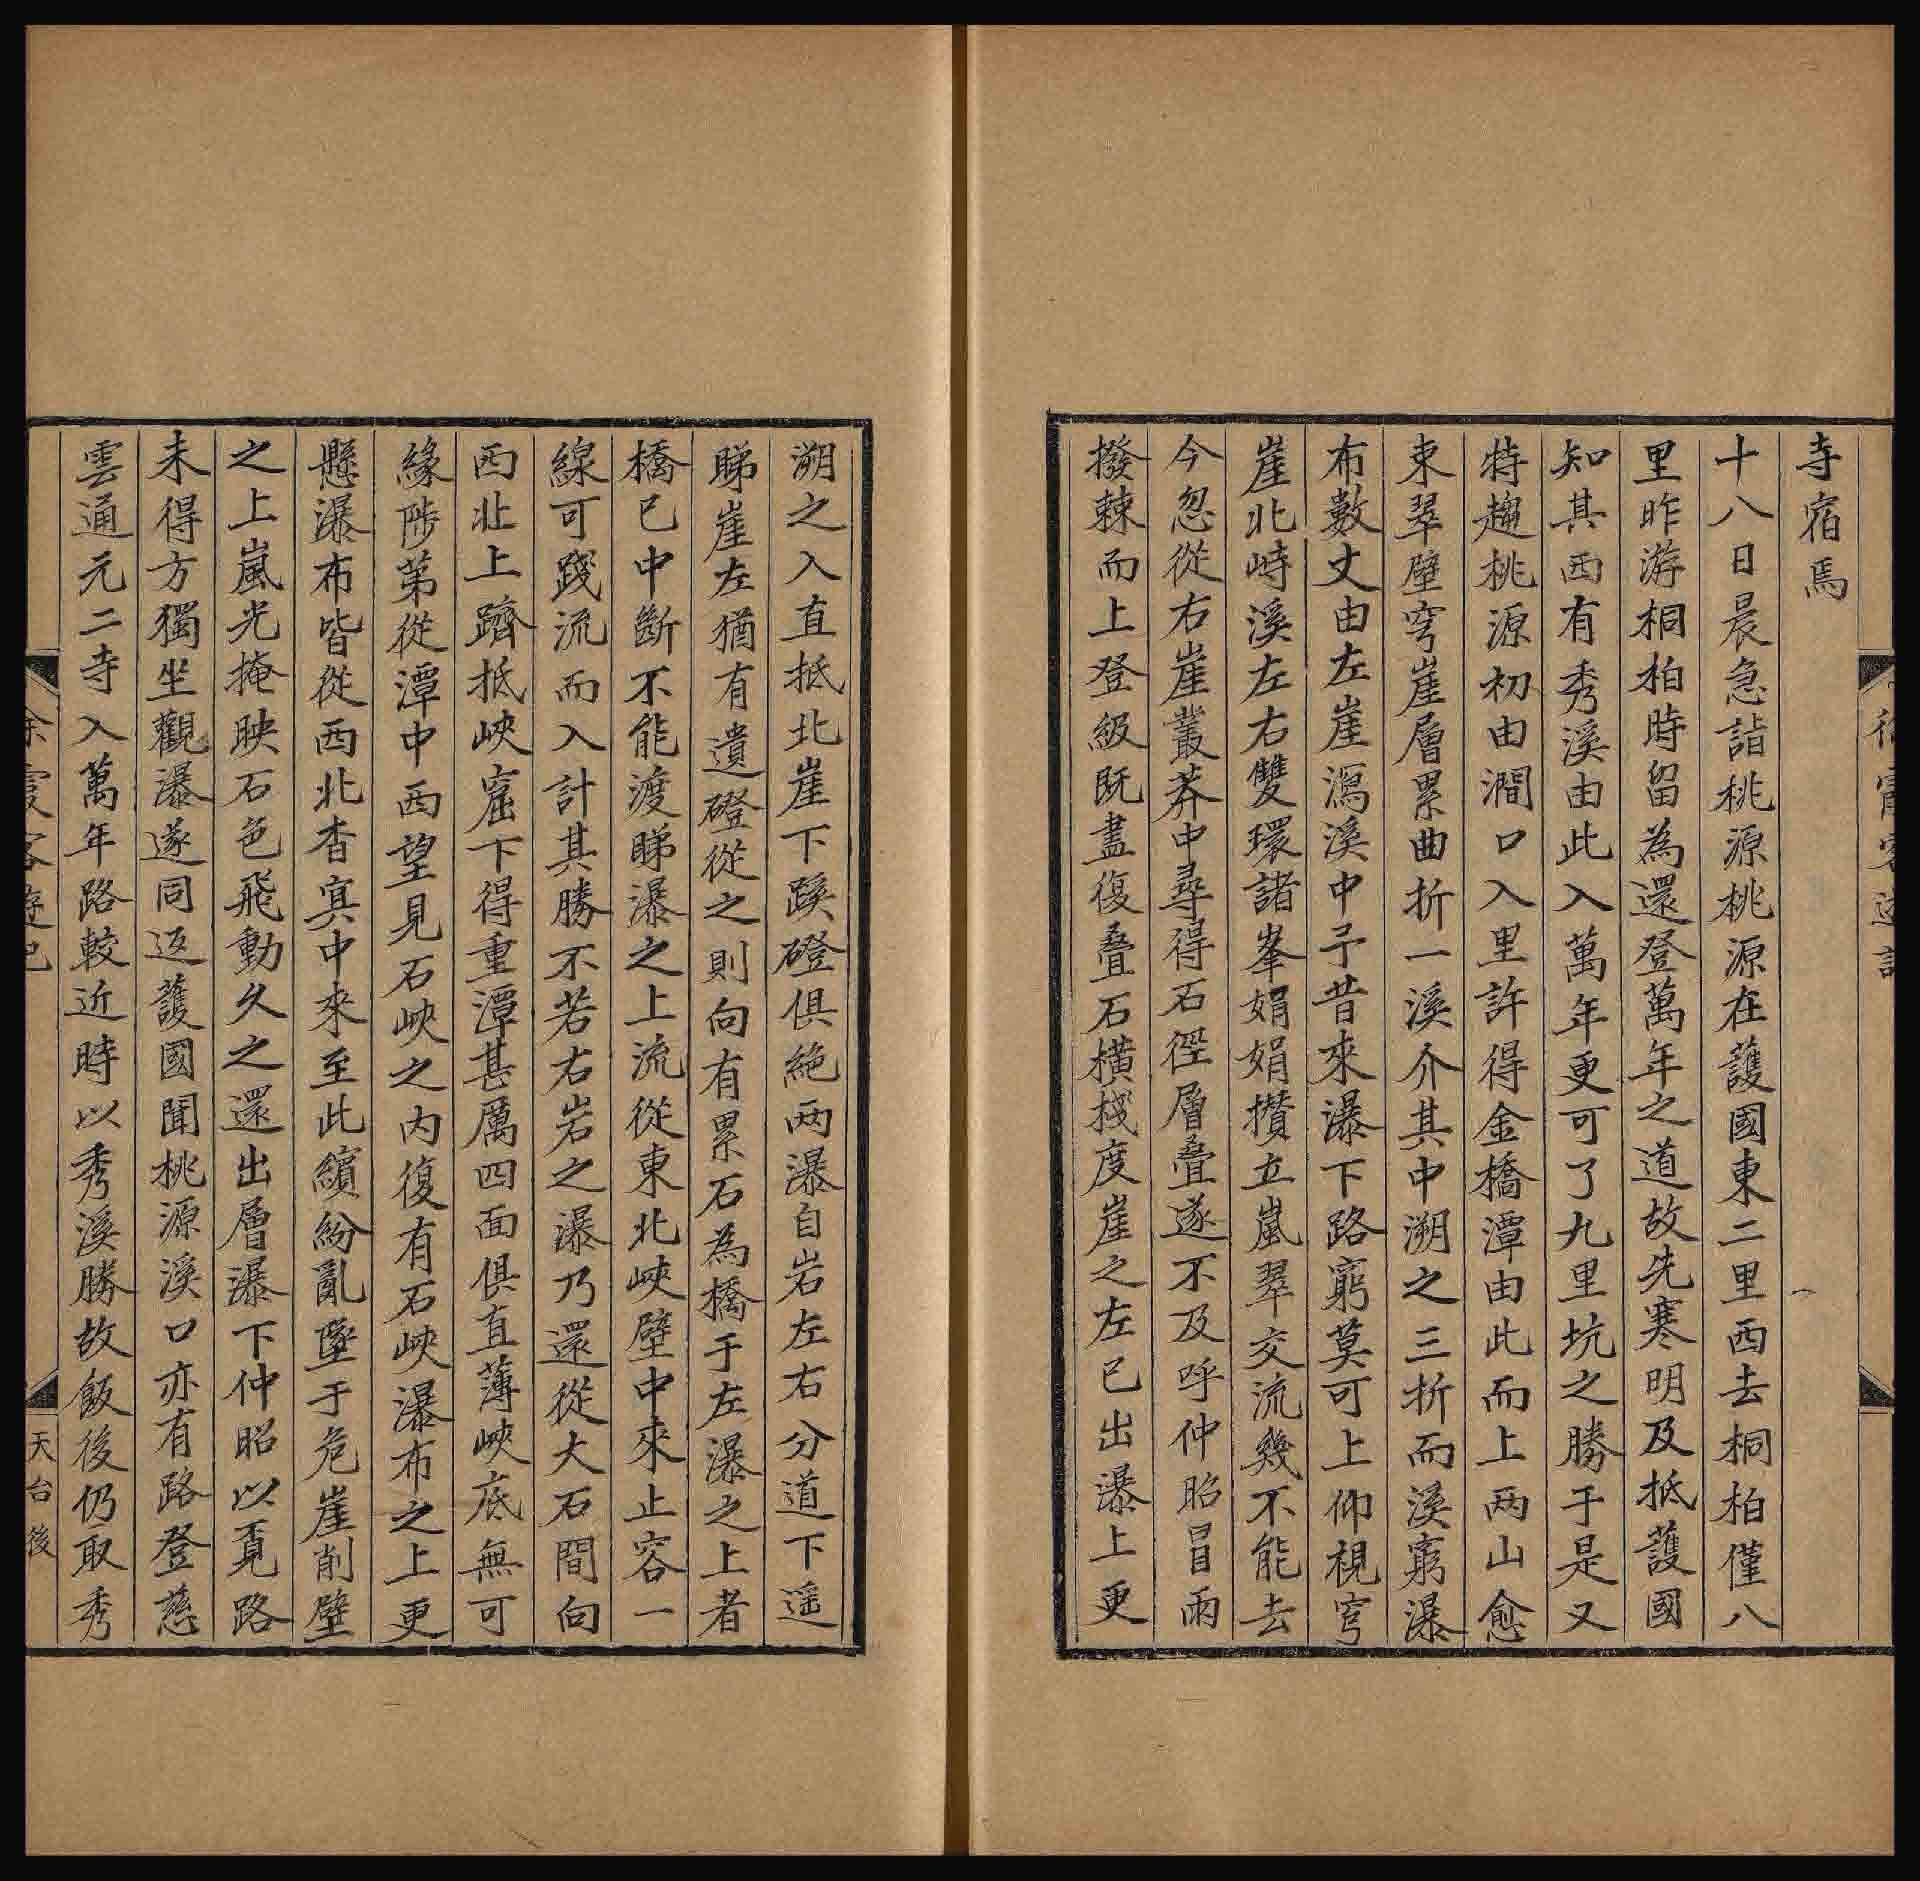 寺宿焉
十八日晨急詣桃源桃源在護國東二里西去桐柏僅八
里昨游桐柏時留為還登萬年之道故先寒明及抵護國
知其西有秀溪由此入萬年更可了九里坑之勝于是又
特趨桃源初由澗口入里許得金橋潭由此而上两山愈
束翠壁穹崖層累曲折一溪介其中溯之三折而溪窮瀑
布數丈由左崖瀉溪中予昔來瀑下路窮莫可上仰視穹
崖北峙溪左右雙環諸峯娟娟攢立嵐翠交流幾不能去
今忽從右崖叢莽中尋得石徑層疊遂不及呼仲昭冒雨
撥棘而上登級既盡復疊石橫棧度崖之左已出瀑上更
溯之入直抵北崖下蹊磴俱絶两瀑自岩左右分道下遥
睇崖左猶有遺磴從之則向有累石為橋于左瀑之上者
橋已中斷不能渡睇瀑之上流從東北峽壁中來止容一
線可踐流而入計其勝不若右岩之瀑乃還從大石間向
西北上躋抵峽窟下得重潭甚厲四面俱直薄峽底無可
緣陟第從潭中西望見石峽之内復有石峽瀑布之上更
懸瀑布皆從西北杳冥中來至此繽紛亂墜于危崖削壁
之上嵐光掩映石色飛動久之還出層瀑下仲昭以覓路
未得方獨坐觀瀑遂同返護國聞桃源溪口亦有路登慈
雲通元二寺入萬年路較近時以秀溪勝故飯後仍取秀
徐霞客遊記
天台後